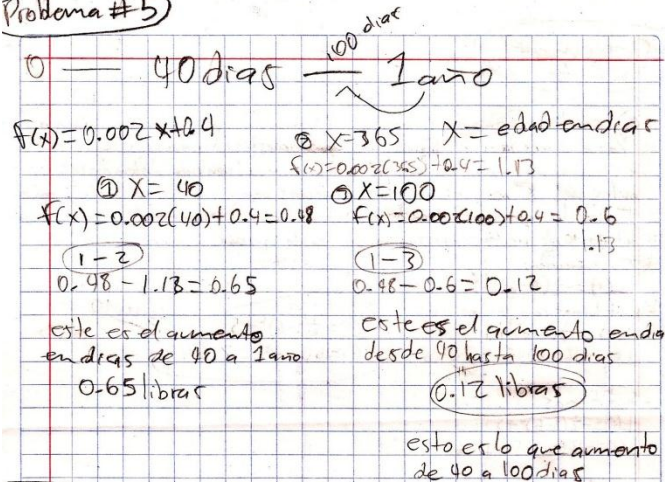 Problema #5)
100 dias
0 — 40 dias — 1 año
f(x)=0.002x+0.4
② X=365 X= edad en dias
f(x)=0.002(365)+0.4= 1.13
① X= 40
③ X=100
f(x)=0.002(40)+0.4=0.48
f(x)=0.002(100)+0.4= 0.6
1.13
1-2
1-3
0.48-1.13=0.65
0.48-0.6=0.12
este es el aumento
en dias de 40 a 1 año
0.65 libras
este es el aumento en dia
desde 40 hasta 100 dias
0.12 libras
esto es lo que aumento
de 40 a 100 dias